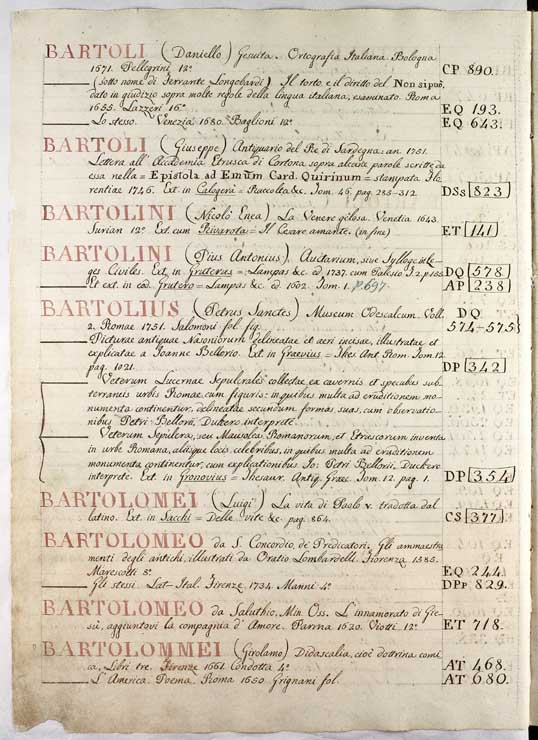 BARTOLI (Daniello) Gesuita. Ortografia Italiana. Bologna
1671. Pellegrini 12° CP 890.
(sotto nome di Ferrante Longobardi) Il torto e il diritto del Non si può,
dato in giudizio sopra molte regole della lingua italiana, esaminato. Roma
1655. Lazzeri 16° EQ 193.
Lo stesso. Venezia 1680. Baglioni 12° EQ 643.
BARTOLI (Giuseppe) Antiquario del Re di Sardegna: an. 1751.
Lettera all' Accademia Etrusca di Cortona sopra alcune parole scritte da
essa nella = Epistola ad Emum Card. Quirinum = stampata Flo-
rentiae 1745. Ext. in Calogerà = Raccolta &c. Tom. 46. pag. 285-312 DSs 823
BARTOLINI (Nicolò Enea) La Venere gilosa. Venetia 1643.
Surian 12° Ext cum Pivarota = Il Cesare amante. (in fine) ET 141
BARTOLINI (Pius Antonius) Auctarium, sive Sylloge in le-
ges Civiles. Ext. in Gruterus = Lampas &c. ed. 1737. cum Palesio T.2. p.155 DQ 578
Et ext. in ed. Grutero = Lampas &c. ed 1602. Tom. 1. p. 697 AP 238
BARTOLIUS (Petrus Sanctes) Museum Odescalcum. Voll.
2. Romae 1751. Salomoni fol. fig. DQ 574-575
Picturae antiquae Nasoniorum delineatae et aeri incisae, illustratae, et
explicatae a Ioanne Bellorio. Ext. in Graevius = Thes. Ant. Rom. Tom. 12.
pag. 1021. DP 342
Veterum Lucernae Sepulcrales collectae ex cavernis et specubus sub-
terraneis urbis Romae, cum figuris: in quibus multa ad eruditionem mo-
numenta continentur, delineatae secundum formas suas, cum observatio-
nibus Petri Bellorii, Dukero interprete.
Veterum Sepulcra, seu Mausolea Romanorum, et Etruscorum inventa
in urbe Romana, aliisque locis celebribus, in quibus multa ad eruditionem
monumenta continentur, cum explicationibus Io: Petri Bellorii, Duckero
interprete. Ext. in Gronovius = Thesaur. Antiq. Graec. Tom. 12. pag. 1. DP 354
BARTOLOMEI (Luigi) La vita di Paolo V. tradotta dal
latino. Ext. in Sacchi = Delle vite &c. pag. 864. CS 377
BARTOLOMEO da S. Concordio, de' Predicatori. Gli ammaestra-
menti degli antichi, illustrati da Oratio Lombardelli. Fiorenza 1585.
Marescotti 8° EQ 244.
Gli stessi. Lat-Ital. Firenze, 1734. Manni 4° DPp 829.
BARTOLOMEO da Saluthio, Min. Oss. L' innamorato di Gie-
sù, aggiuntovi la compagnia d' Amore. Parma 1620. Viotti 12° ET 718.
BARTOLOMMEI (Girolamo) Didascalia, cioè dottrina comi-
ca, Libri tre. Firenze 1661 Condotta 4° AT 468.
L' America. Poema. Roma 1650 Grignani fol. AT 680.